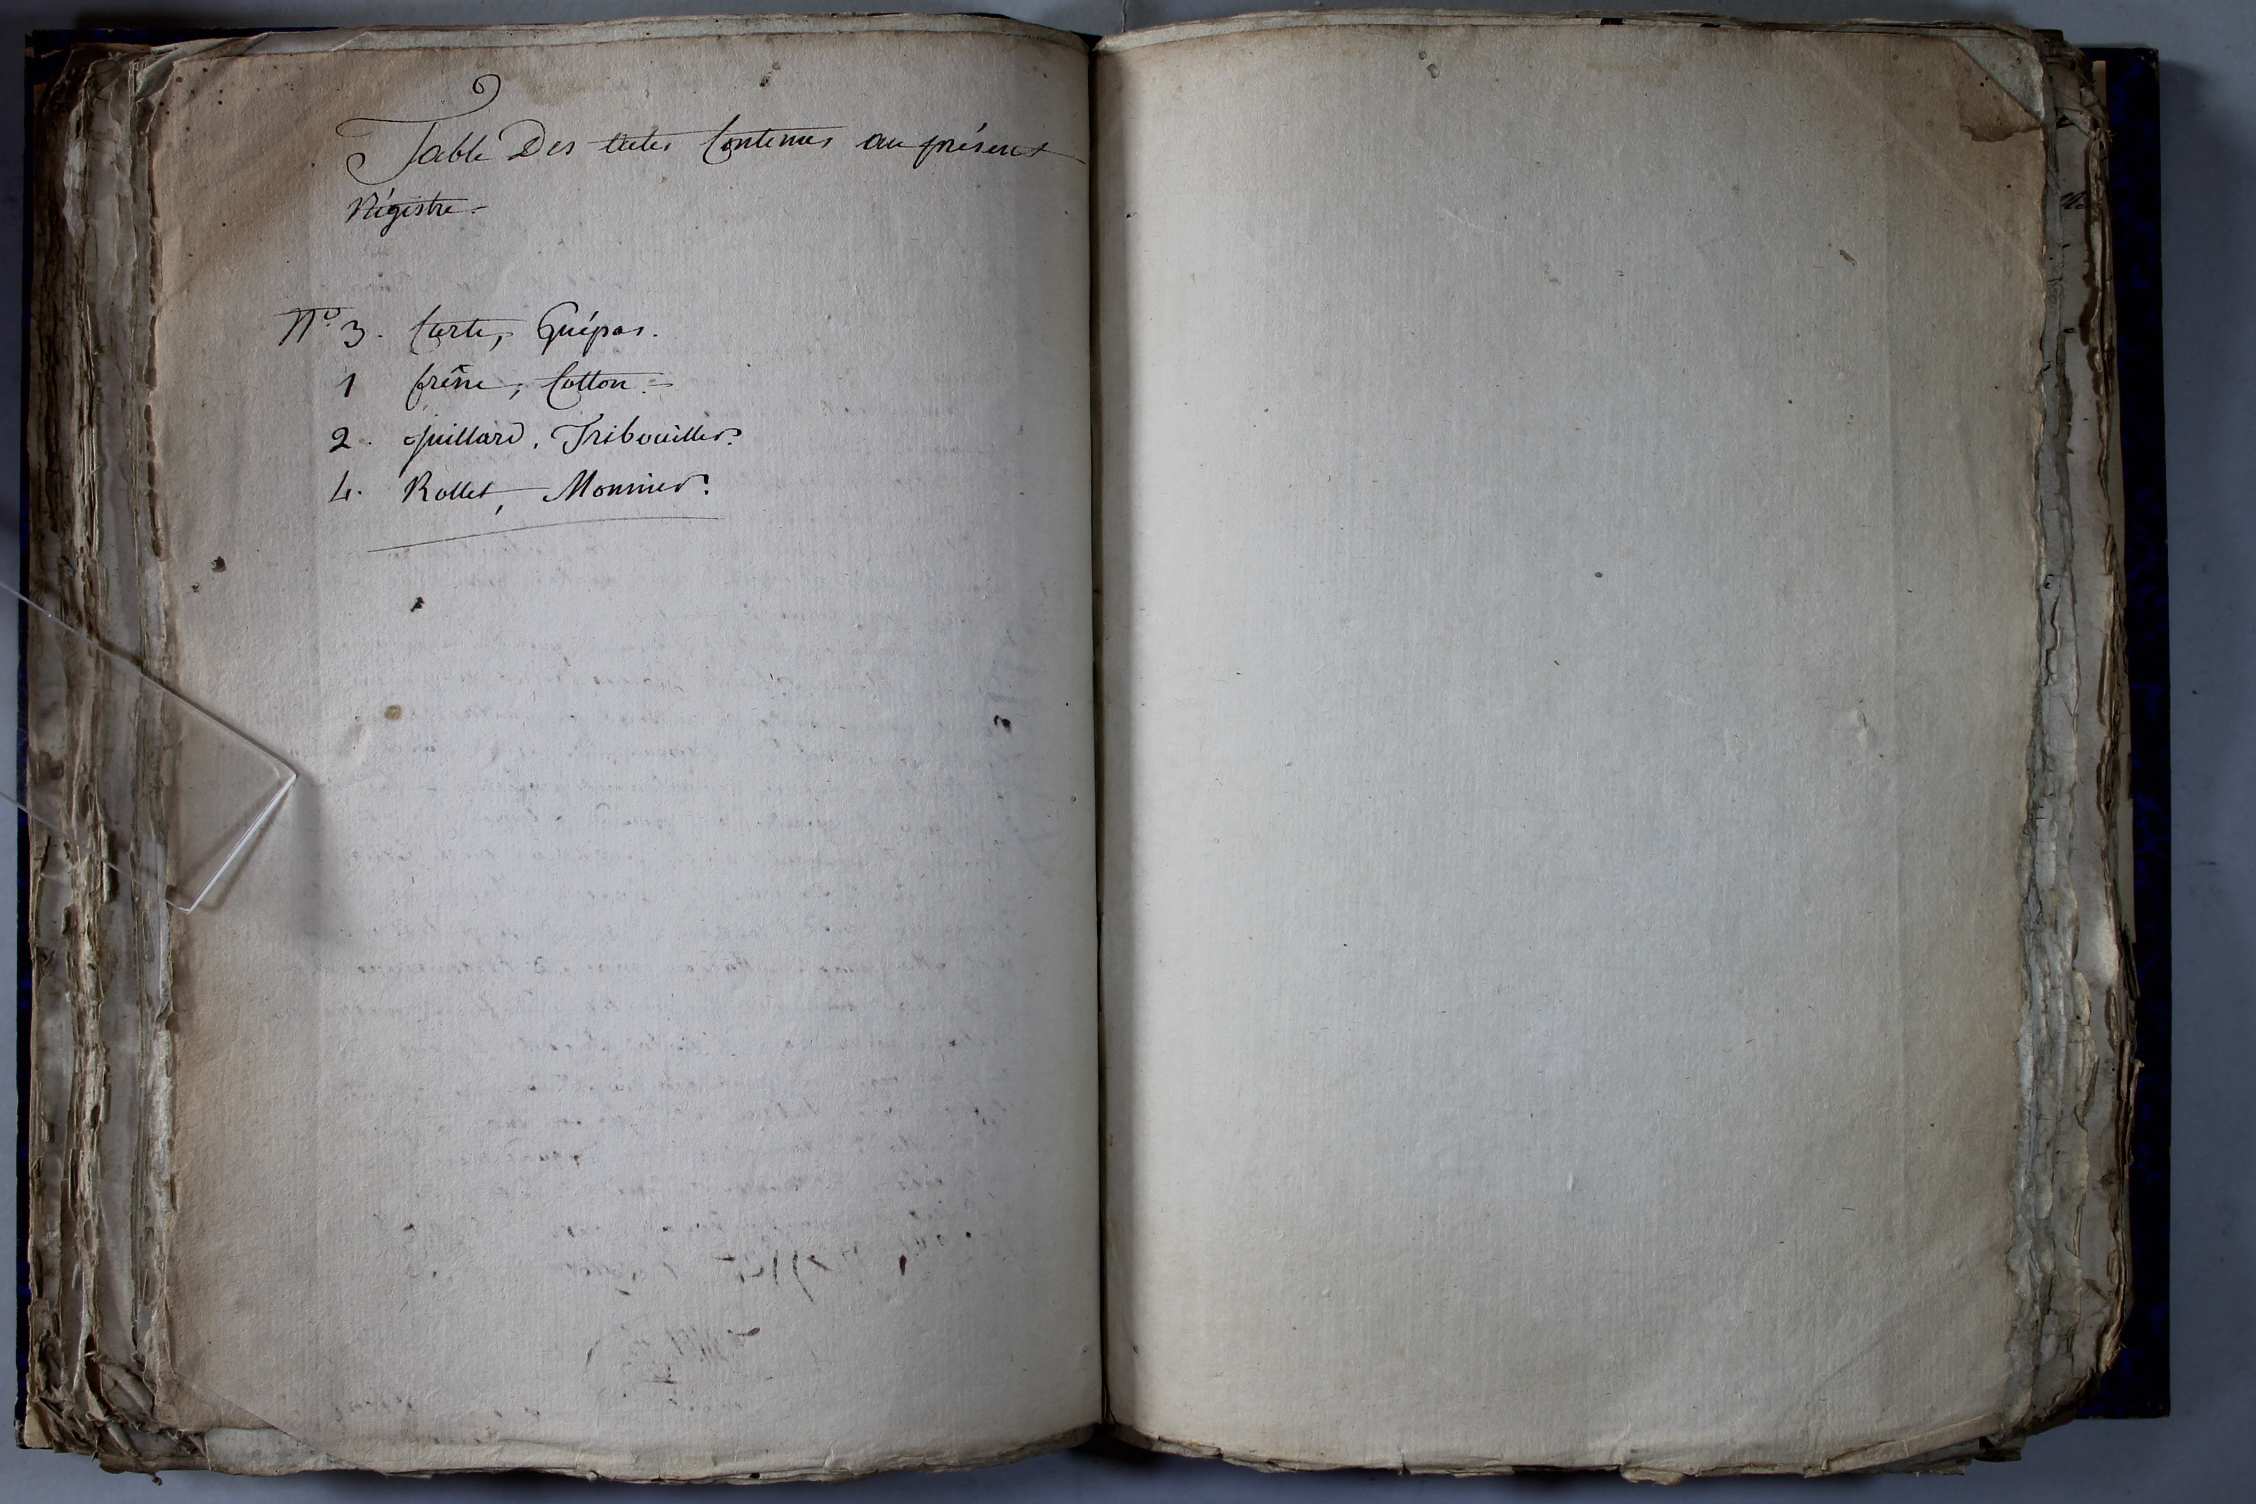 Table Des actes Contenus au présent
Régistre.
N.º 3. Curte, Guépas.
1 frêne, Cotton.
2. Juillard, Tribouillet.
4. Rollet, Monnier.